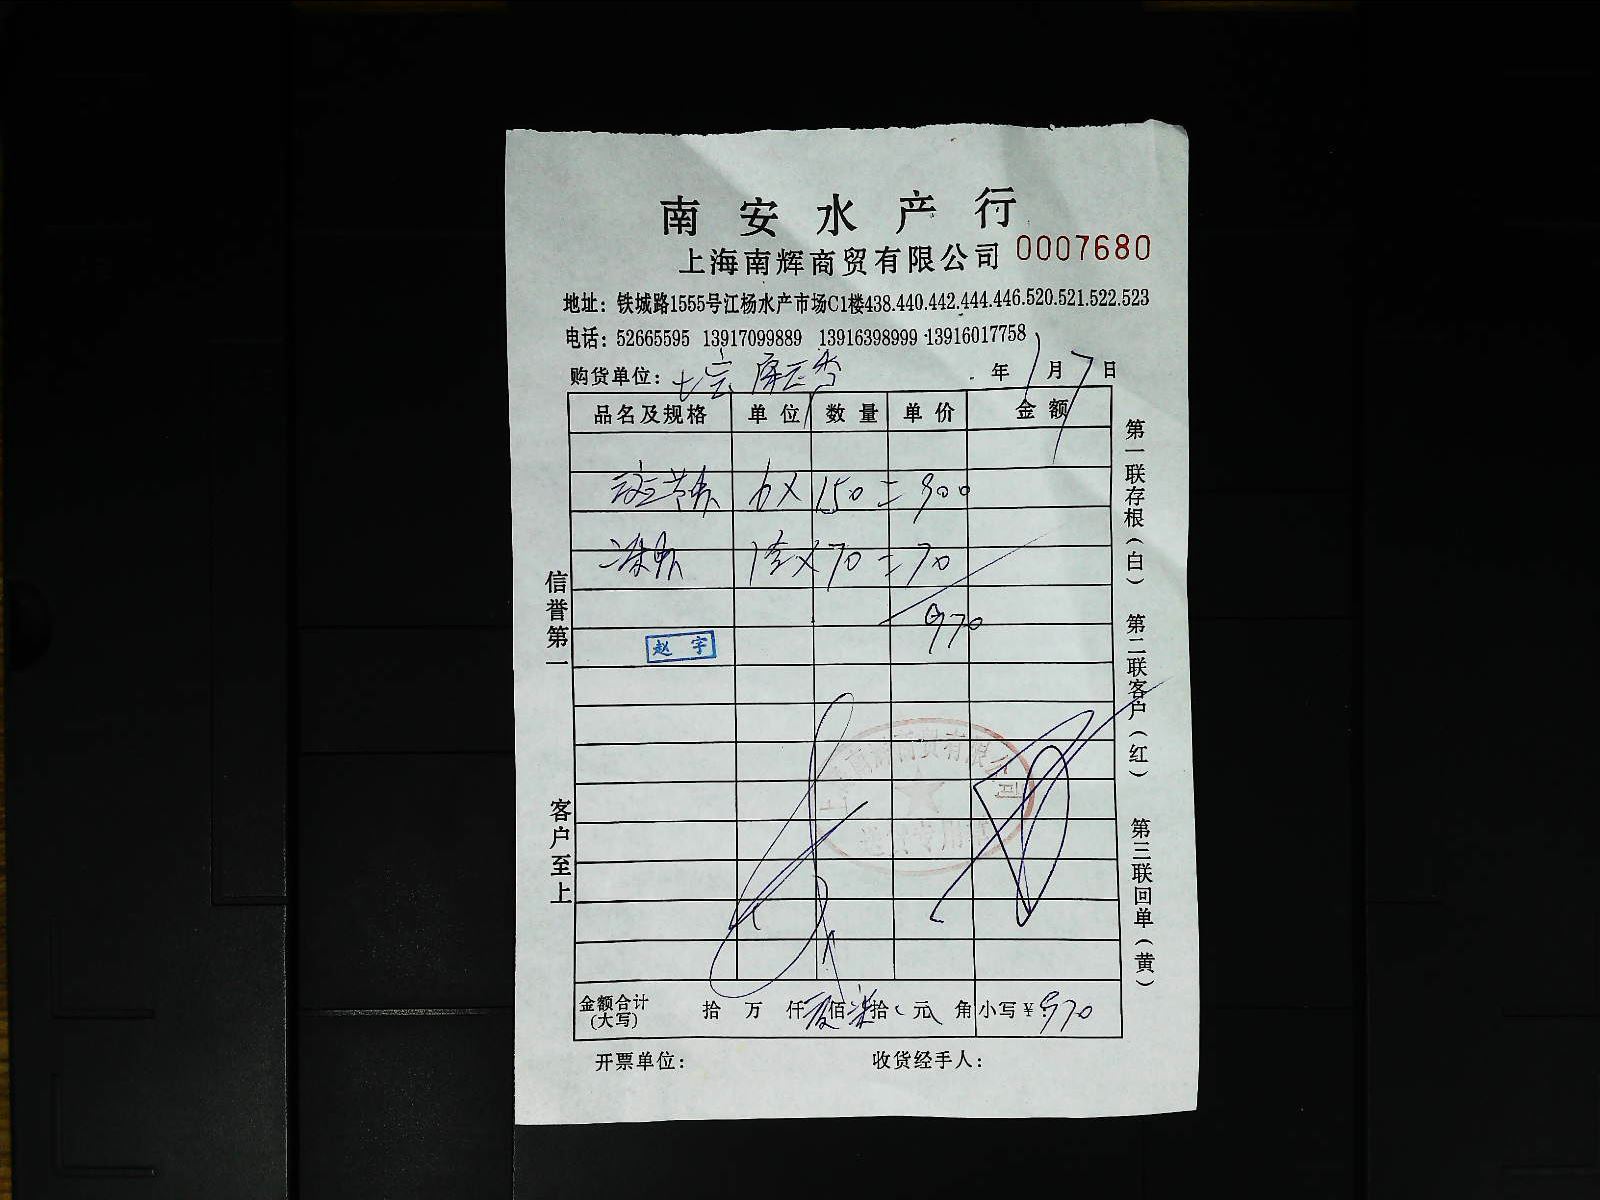 南安水产行
上海南辉商贸有限公司 0007680
地址：铁城路1555号江杨水产市场C1楼438.440.442.444.446.520.521.522.523
电话：52665595 13917099889 13916398999 13916017758
购货单位： 年 1 月 7 日
品名及规格 单位 数量 单价 金额
X 150 = 900
冻虾 1 X 70 = 70
970
赵宇
金额合计(大写) 拾 万 仟 佰 柒 拾 元 角 小写￥：970
开票单位： 收货经手人：
信誉第一
客户至上
第一联存根(白) 第二联客户(红) 第三联回单(黄)